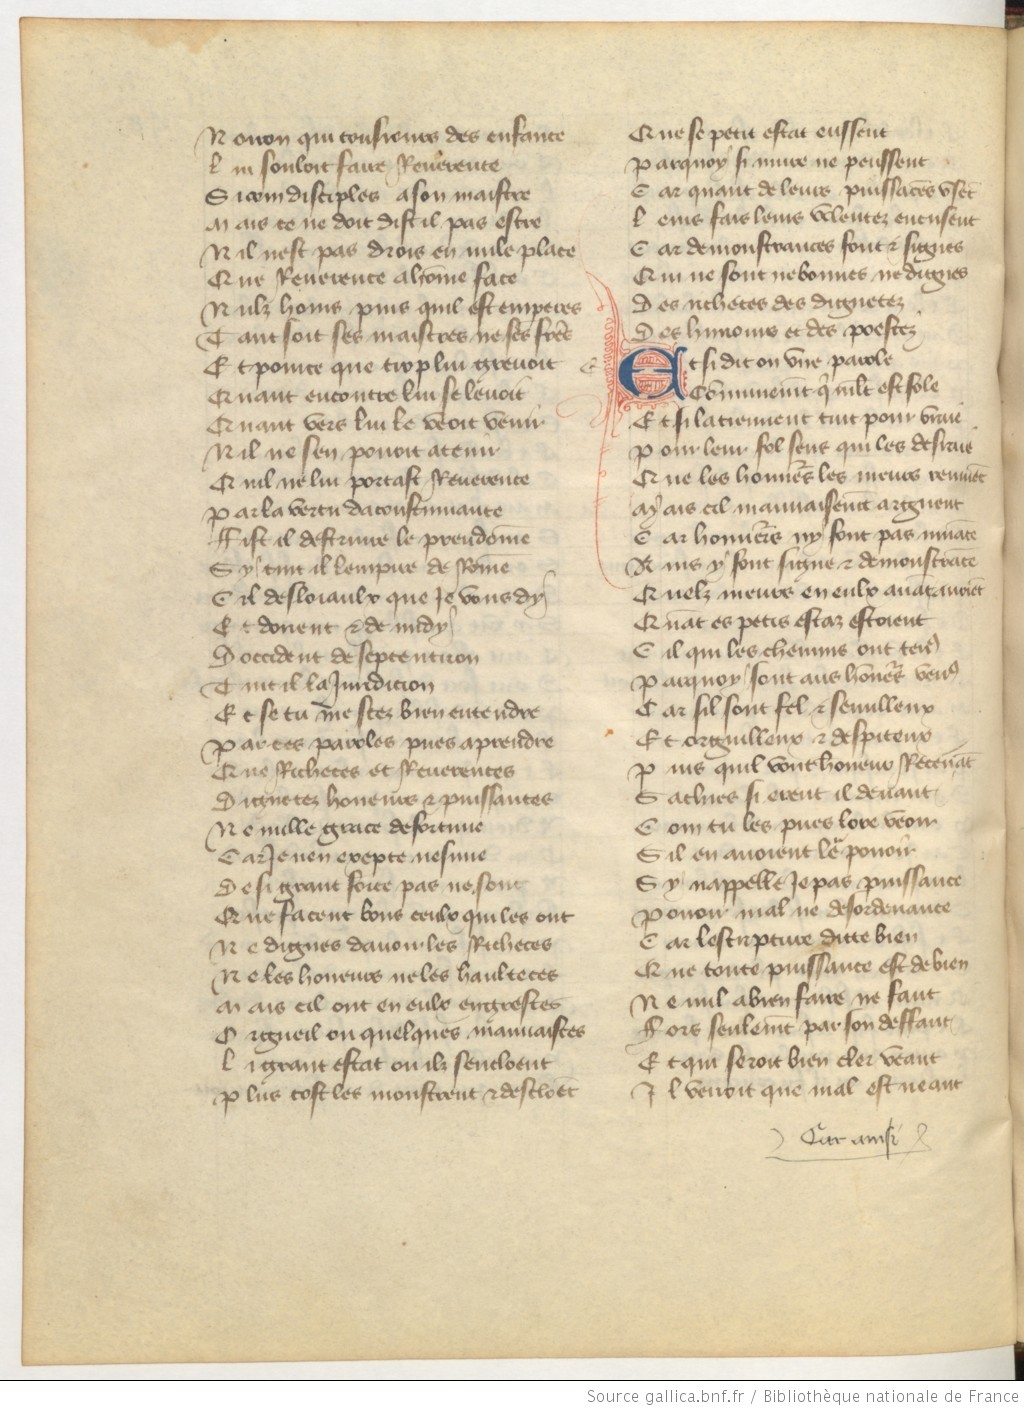 Noiron qui tousiours des enfance
Lui souloit faire Reuerence
Sicom disciples a son maistre
Mais ce ne doit dist il pas estre
Nil nest pas drois en nule place
Que Reuerence a hōme face
Nulz homs puis quil est empereres
Tant soit ses maistres ne ses freres
Et pource que trop lui greuoit
Quant encontre lui se leuoit
Quant vers lui le veoit venir
Nil ne sen pouoit atenir
Quil ne lui portast Reuerence
Par la vertu dacoustumance
Fist il destruire le preudōme
Sy tint il lempire de Rōme
Cil desloiaulx que Je vous dy
Et dorient & de midy
Doccident de septentrion
Tint il la Juridicion
Et se tu me scez bien entendre
Par ces paroles pues aprendre
Que Richeces et Reuerences
Dignetez honeurs & puissances
Ne nulle grace de fortune
Car Je nen excepte nesune
De si grant force pas ne sont
Que facent bons ceulx qui les ont
Ne dignes dauoir les Richeces
Ne les honeurs ne les haulteces
Mais cil ont en eulx engrestes
Orgueil ou quelques mauuaistes
Li grant estat ou ilz sencloent
Plus tost les monstrent & descloēt
Que se petit estat eussent
Parquoy si nuire ne peussent
Car quant de leurs puissāces vsēt
Leurs fais leurs volentez encusent
Car demonstrances sont & signes
Qui ne sont ne bonnes ne dignes
Des richeces des dignetez
Des honnours et des poestez
Et si dit on vne parole
Cōmunemt̄ q̄ mlt̄ est fole
Et si la tiennent tuit pour vraie
Pour leur fol sens qui les desraie
Que les honneurs les meurs remuēt
Mais cil mauuaisemt̄ arguent
Car honneurs ny font pas muāce
Mais y font signe & demonstrāce
Quelz meurs en eulx auāt auoiēt
Quāt es petis estaz estoient
Cil qui les chemins ont tenꝰ
Parquoy sont aus hōneurs venꝰ
Car sil sont fel & semilleux
Et orguilleux & despiteux
Puis quil vont honeur Receuāt
Saches si erent il deuant
Com tu les pues lors veoir
Sil en auoient le pouoir
Sy nappelle Je pas puissance
Pouoir mal ne desordenance
Car lescripture ditte bien
Que toute puissance est de bien
Ne nul a bien faire ne faut
Fors seulemt̄ par son deffaut
Et qui seroit bien cler veant
Il verroit que mal est neant
Car ainsi
Source gallica.bnf.fr / Bibliothèque nationale de France